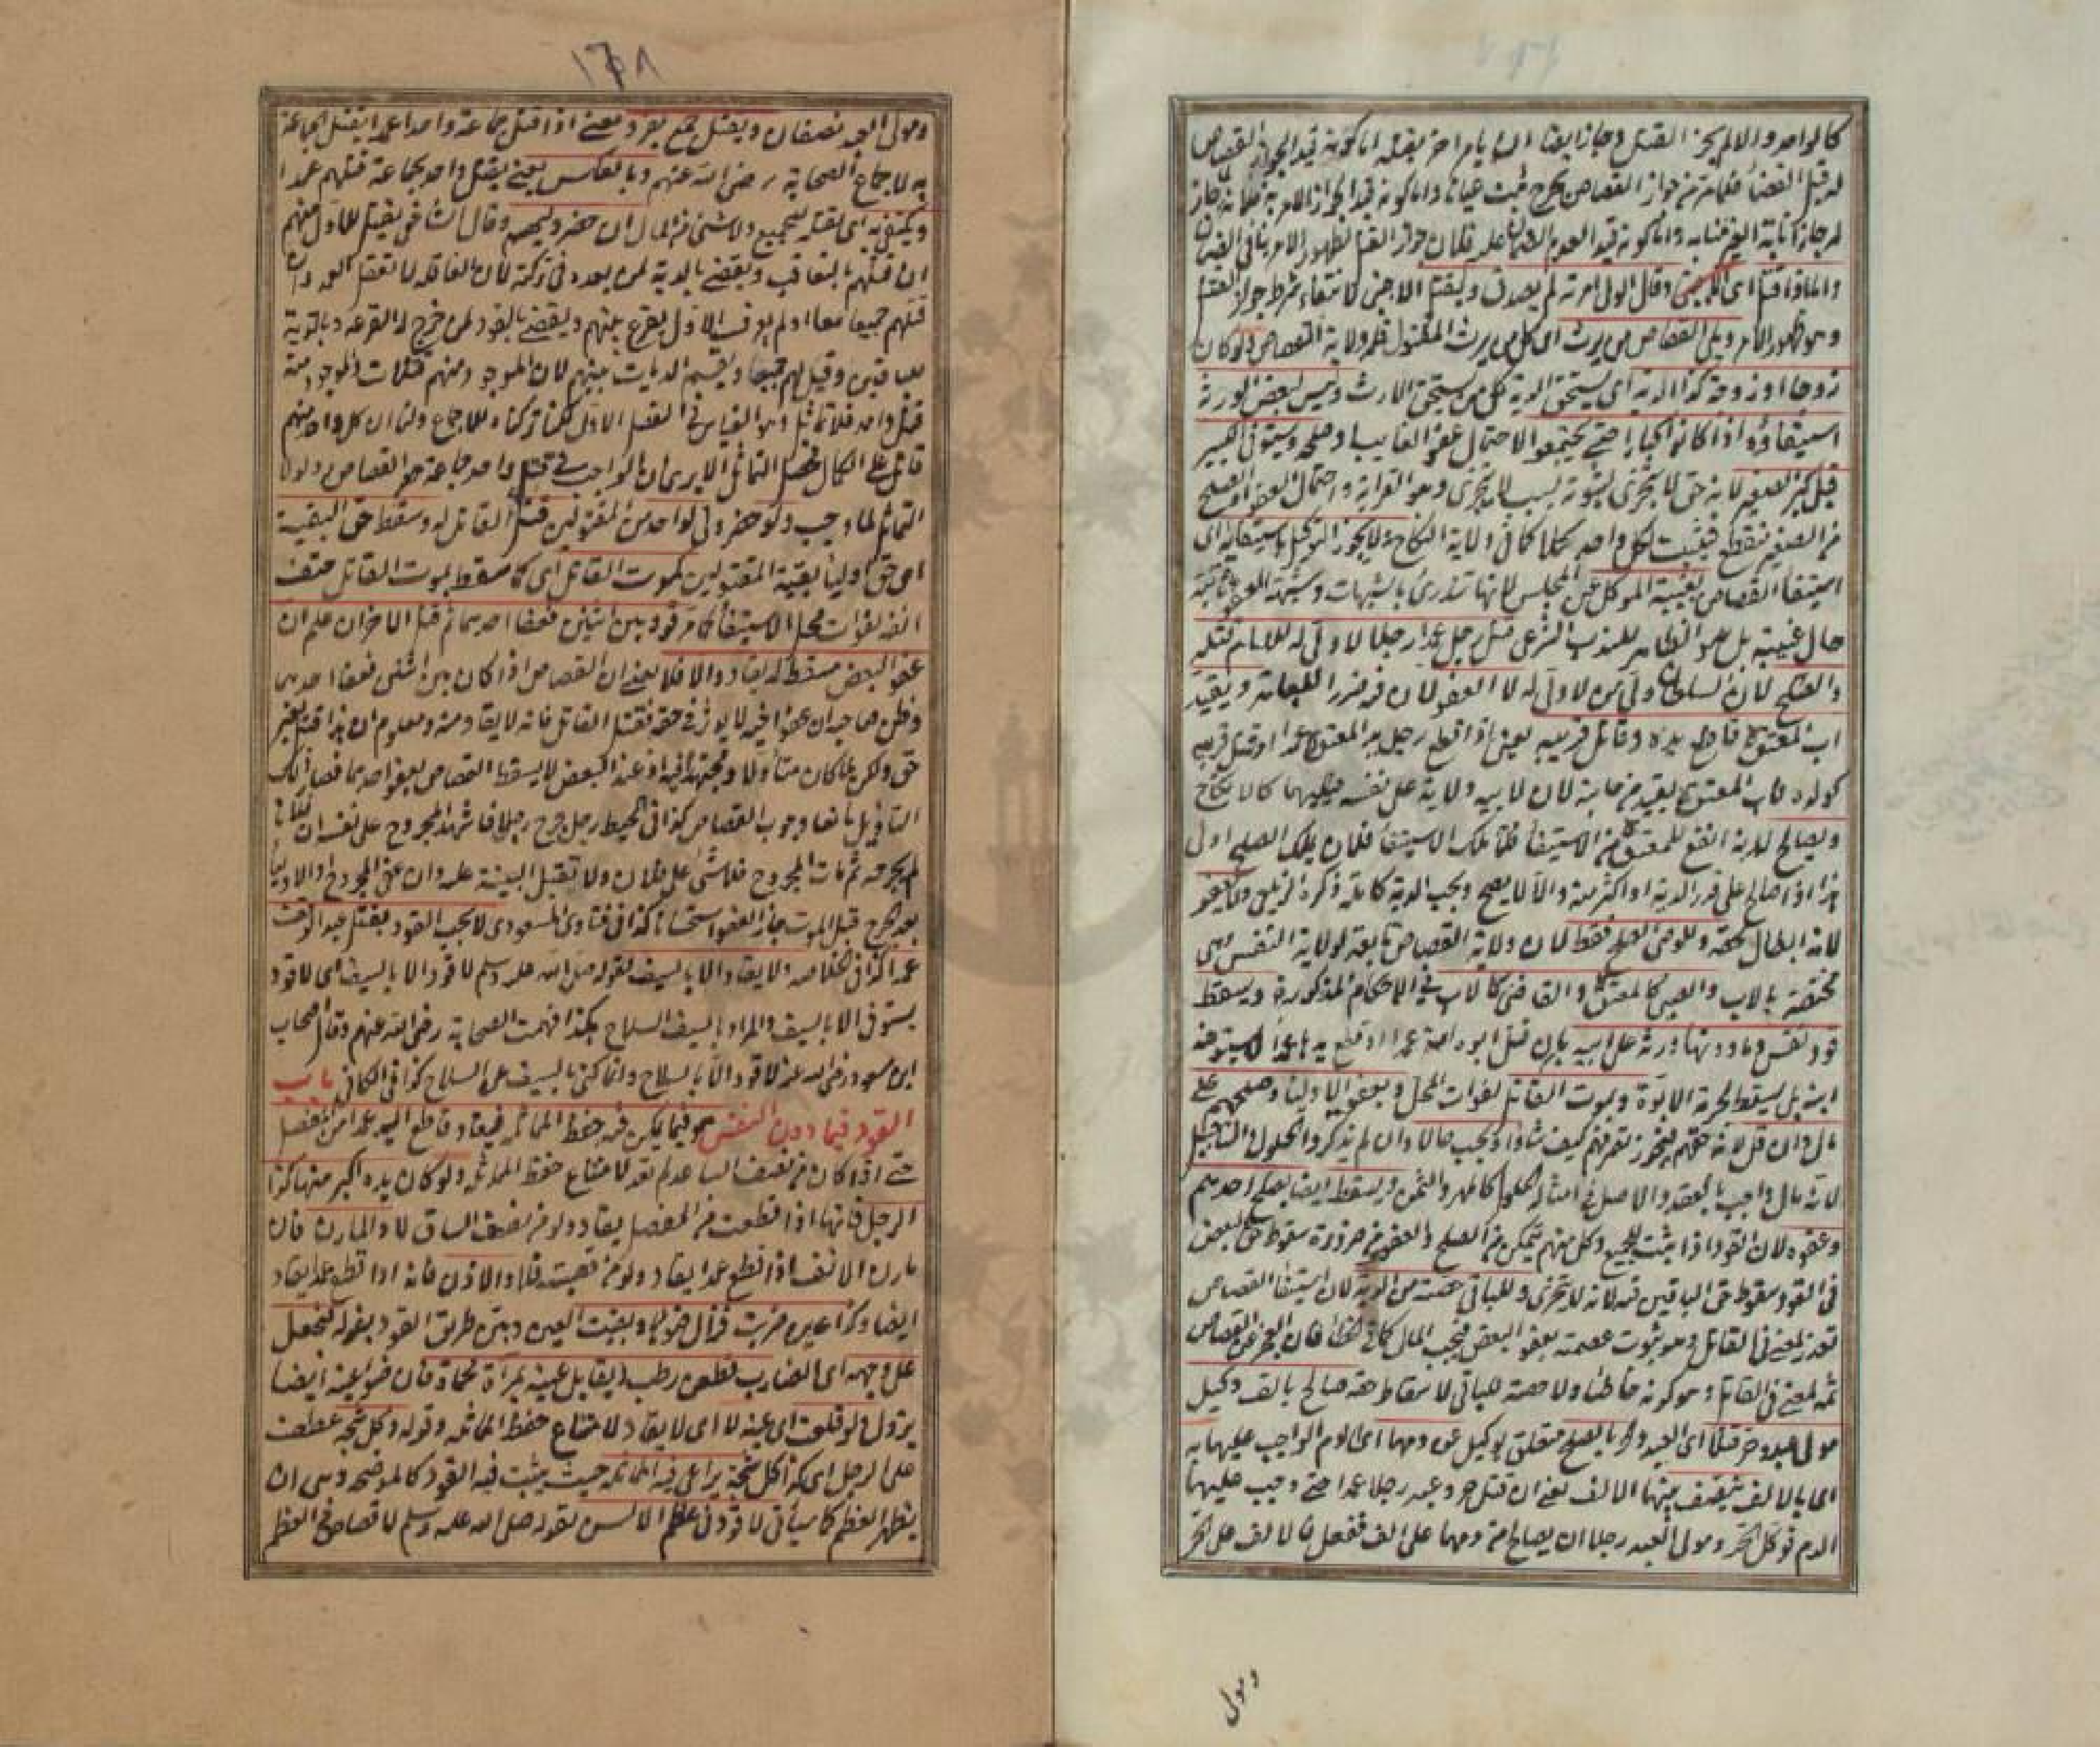 كالواحد والا لم يجز القتل وجاز ايضا ان يامر اخر بقتله اما كونه قيدا لجواز القصاص
له قبل القضاء فلما مر من جواز القصاص بجرح ثبت عيانا واما كونه قيدا لجواز الامر به فلما انه جاز
له جاز انابة الغير منابه واما كونه قيدا لعدم الضمان عليه فلان جواز القتل لظهور الامر ينافي الضمان
واما اذا قتل اى الاجنبى وقال الولى امرته لم يصدق ويقتل الاجنبى لانتفاء شرط جواز القتل
وهو ظهور الامر ويلى القصاص من يرث اى كل من يرث المقتول فله ولاية القصاص ولو كان
زوجا او زوجة كذا الدية اى يستحق الدية كل من يستحق الارث وليس لبعض الورثة
استيفاؤه اذا كانوا كبارا حتى يجتمعوا لاحتمال عفو الغايب او صلحه ويستوفى الكبير
قبل كبر الصغير لانه حق لا يتجزى لثبوته بسبب لا يتجزى وهو القرابة واحتمال العفو او الصلح
من الصغير منقطع فيثبت لكل واحد كملا كما فى ولاية النكاح ولا يجوز التوكيل باستيفائه اى
استيفا القصاص بغيبة الموكل عن المجلس لانها تندرئ بالشبهات وشبهة العفو ثابتة
حال غيبته بل هو الظاهر للندب الشرعى قتل رجل عمدا رجلا لا ولى له للامام قتله
والصلح لان السلطان ولى من لا ولى له لا العفو لان فيه ضررا للعامة ويقيد
اب المعتوه قاطع يده وقاتل قريبه يعنى اذا قطع رجل يد المعتوه عمدا او قتل قريبه
كولده فاب المعتوه يقيد من جانبه لان لابيه ولاية على نفسه فيليهما كالانكاح
ويصالح لانه انفع للمعتوه من الاستيفا فلما ملك الاستيفا فلان يملك الصلح اولى
هذا اذا صالح على قدر الدية او اكثر منه والا لا يصح ويجب الدية كاملة ذكره الزيلعى ولا يعفو
لانه ابطال لحقه وللوصى الصلح فقط لان ولاية القصاص تابعة لولاية النفس وهى
مختصة بالاب والصبى كالمعتوه والقاضى كالاب فى الاحكام المذكورة ويسقط
قود نفس وما دونها ورثه على ابيه بان قتل ابوه امه عمدا او قطع يدها عمدا لا يستوفيه
ابنه بل يسقط لحرمة الابوة وبموت القاتل لفوات المحل وبعفو الاوليا وصلحهم على
مال وان قل لانه حقهم فيجوز تصرفهم كيف شاؤا ويجب حالا وان لم يذكروا الحلول والتاجيل
لانه مال واجب بالعقد والاصل فى امثاله الحلول كالمهر والثمن ويسقط ايضا بصلح احدهم
وعفوه لان القود اذا يثبت للجميع وكل منهم يتمكن من الصلح والعفو من ضرورة سقوط حق البعض
فى القود سقوط حق الباقين فيه لانه لا يتجزى وللباقى حصته من الدية لان استيفا القصاص
تعذر لمعنى فى القاتل وهو ثبوت عصمته بعفو البعض فيجب المال كما فى الخطأ فان العجز عن القصاص
ثمه لمعنى فى القاتل وهو كونه خاطئا ولا حصة للباقى لاسقاط حقه صالح بالف وكيل
مولى عبد وحر قتلا اى العبد والحر بالصلح متعلق بوكيل عن دمهما اى الدم الواجب عليهما به
اما بالالف تنصف بينهما الالف يعنى ان قتل حر وعبد رجلا عمدا حتى وجب عليهما
الدم فوكل الحر ومولى العبد رجلا ان يصالح من دمهما على الف ففعل فالالف على الحر
ومولى
ومولى العبد نصفان ويقتل جمع بفرد يعنى اذا قتل جماعة واحدا عمدا يقتل الجماعة
به لاجماع الصحابة رضى الله عنهم وبالعكس يعنى يقتل واحد بجماعة قتلهم عمدا
ويكتفى به اى بقتله للجميع ولا شئ من المال ان حضر وليهم وقال الشافعى يقتل للاول منهم
ان قتلهم بالتعاقب ويقضى بالدية لمن بعده فى تركته لان العاقلة لا تعقل العمد وان
قتلهم جميعا معا او لم يعرف الاول يقرع بينهم ويقضى بالقود لمن خرج له القرعة وبالدية
للباقين وقيل لهم جميعا وتقسم الديات بينهم لان الموجود منهم قتلات والموجود منه
قتل واحد فلا تماثل وهو القياس فى الفصل الاول لكنا تركناه للاجماع ولنا ان كل واحد منهم
قاتل على الكمال فحصل التماثل الا يرى ان الواجب فى قتل واحد جماعة هو القصاص ولولا
التماثل لما وجب ولو حضر ولى لواحد من المقتولين قتل القاتل له وسقط حق البقية
اى حق اوليا بقية المقتولين كموت القاتل اى كما سقط بموت القاتل حتف
انفه لفوات محل الاستيفا كما مر قود بين اثنين فعفا احدهما ثم قتل الاخر ان علم ان
عفو البعض مسقط له يقاد والا فلا يعنى ان القصاص اذا كان بين اثنين فعفا احدهما
وظن صاحبه ان عفو اخيه لا يؤثر فى حقه فقتل القاتل فانه لا يقاد منه ومعلوم ان هذا قتل بغير
حق ولكن لما كان متأولا ومجتهدا فيه اذ عند البعض لا يسقط القصاص بعفو احدهما فصار ذلك
التاويل مانعا وجوب القصاص كذا فى المحيط رجل جرح رجلا فاشهد المجروح على نفسه ان فلانا
لم يجرحه ثم مات المجروح فلا شئ على فلان ولا تقبل البينة عليه وان عفى المجروح او الاوليا
بعد الجرح قبل الموت جاز العفو استحسانا كذا فى فتاوى المسعودى لا يجب القود بقتل عبد الوقف
عمدا كذا فى الخلاصه ولا يقاد الا بالسيف لقوله صلى الله عليه وسلم لا قود الا بالسيف اى لا قود
يستوفى الا بالسيف والمراد بالسيف السلاح هكذا فهمت الصحابة رضى الله عنهم وقال اصحاب
ابن مسعود رضى الله عنه لا قود الا بالسلاح وانما كنى بالسيف عن السلاح كذا فى الكافى باب
القود فيما دون النفس هو فيما يمكن فيه حفظ المماثلة فيقاد قاطع اليد عمدا من المفصل
حتى اذا كان من نصف الساعد لم يقد لامتناع حفظ المماثلة ولو كان يده اكبر منها كذا
الرجل فانها اذا قطعت من المفصل يقاد ولو من نصف الساق لا والمارن فان
مارن الانف اذا قطع عمدا يقاد ولو من قصبته فلا والاذن فانه اذا قطع عمدا يقاد
ايضا وكذا عين ضربت فزال ضوئها وبقيت العين وبين طريق القود بقوله فيجعل
على وجهه اى الضارب قطن رطب ويقابل عينه بمرآة محماة فان ضوء عينه ايضا
يزول ولو قلعت اى عينه لا اى لا يقاد لامتناع حفظ المماثلة وقوله وكل شجة عطف
على الرجل اى كذا كل شجة يراعى فيه المماثلة حيث يثبت فيه القود كالموضحة وهى ان
يظهر العظم كما سيأتى لا قود فى عظم الا السن لقوله صلى الله عليه وسلم لا قصاص فى العظم